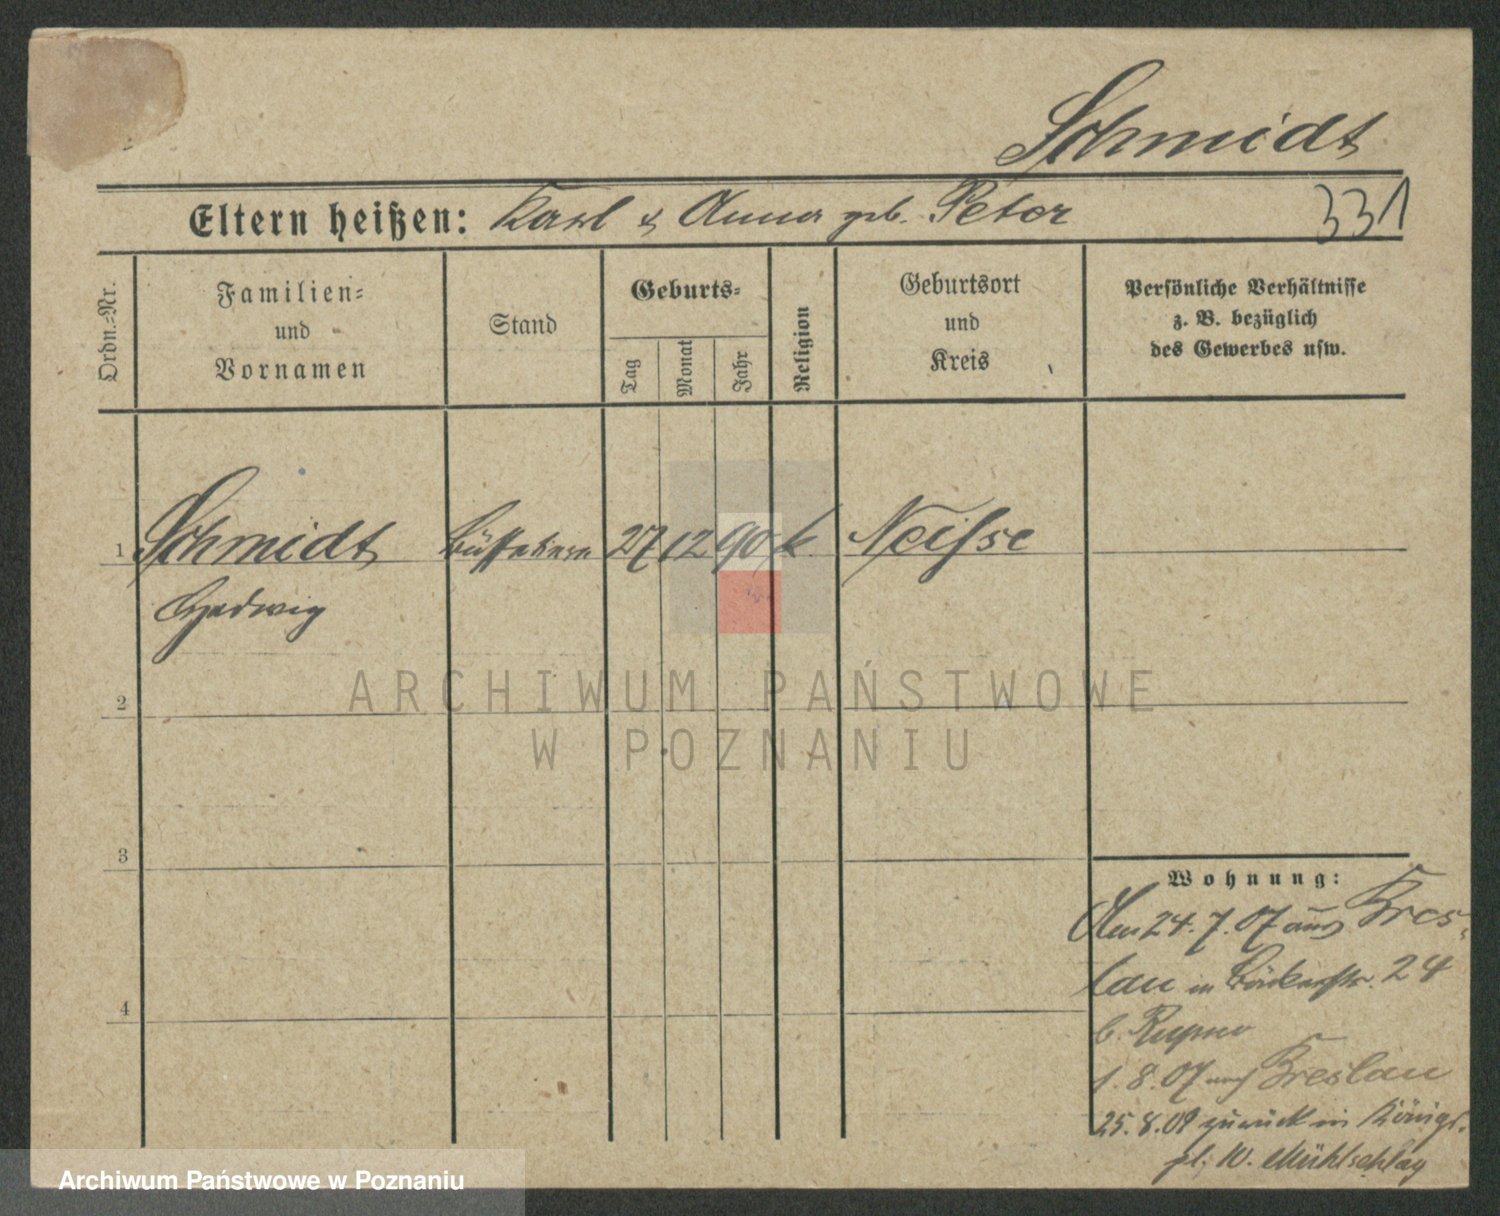 Schmidt
Eltern heißen: Karl & Anna geb. Peter 331
Ordn.-Nr.
Familien-
und
Vornamen
Stand
Geburts-
Tag
Monat
Jahr
Religion
Geburtsort
und
Kreis
Persönliche Verhältnisse
z. B. bezüglich
des Gewerbes usw.
1 Schmidt 27 12 90 k. Neisse
Hedwig
2
3
4
ARCHIWUM PAŃSTWOWE
W POZNANIU
Wohnung:
24.7.07 aus Bres-
lau in Bäckerstr. 24
b.
1.8.07 nach Breslau
25.8.09 zurück in Königs-
pl.
Archiwum Państwowe w Poznaniu